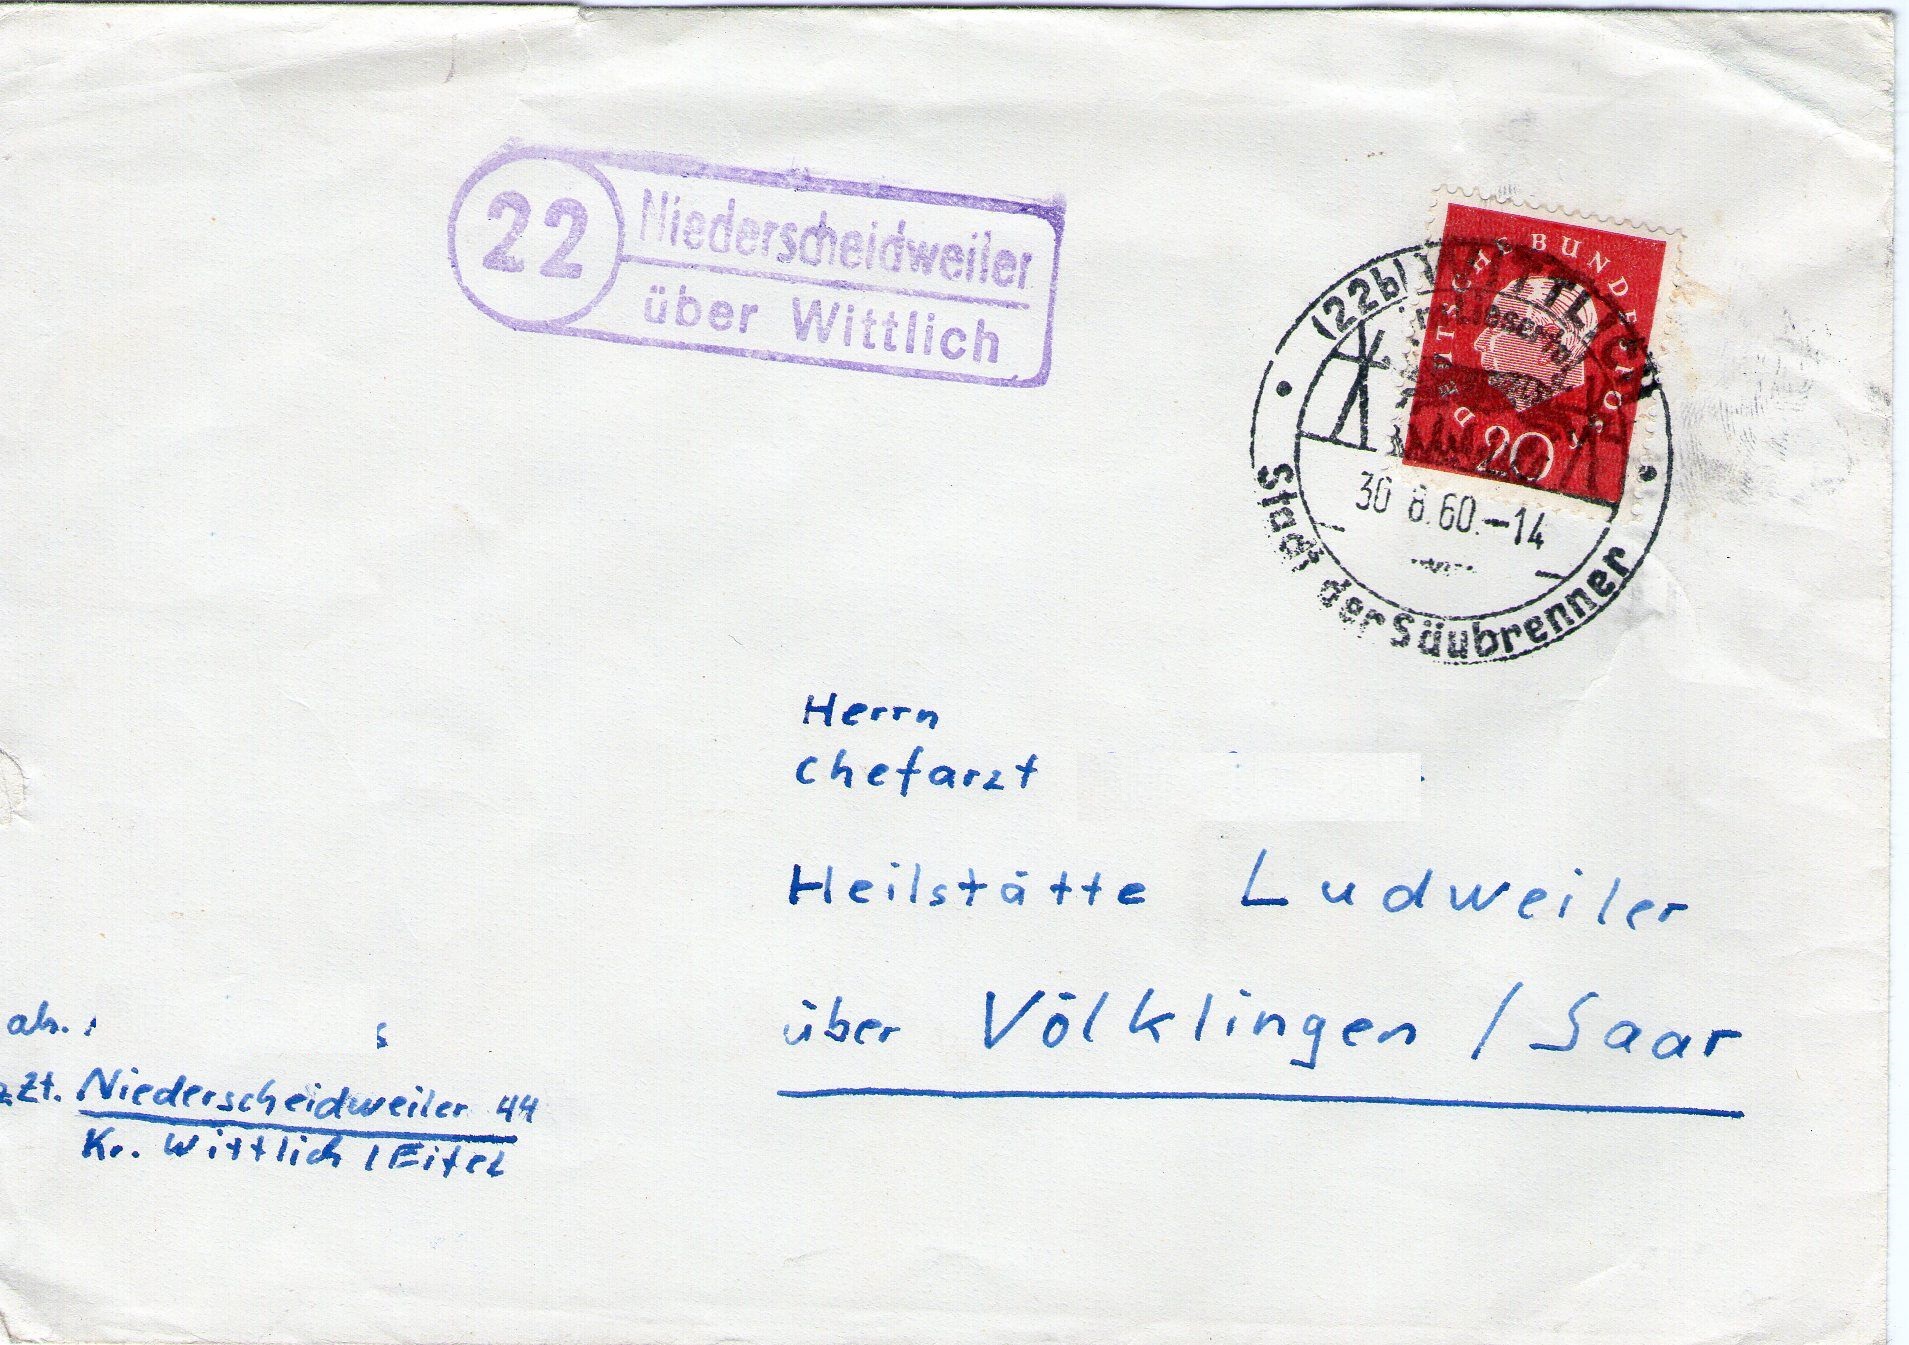 22
Niederscheidweiler
über Wittlich
DEUTSCHE BUNDESPOST
20
(22b) WITTLICH
30 8.60.-14
Stadt der Säubrenner
Herrn
Chefarzt
Heilstätte Ludweiler
über Völklingen / Saar
ab.
z.Zt. Niederscheidweiler 44
Kr. Wittlich / Eifel